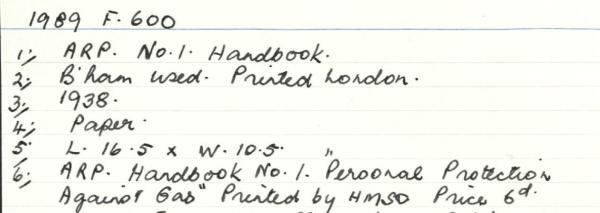 1989 F. 600
1; ARP. No. 1. Handbook.
2; B'ham used. Printed London.
3; 1938.
4; Paper.
5; L. 16.5 x W. 10.5. "
6; ARP. Handbook No. 1. Personal Protection
Against Gas" Printed by HMSO Price 6d.